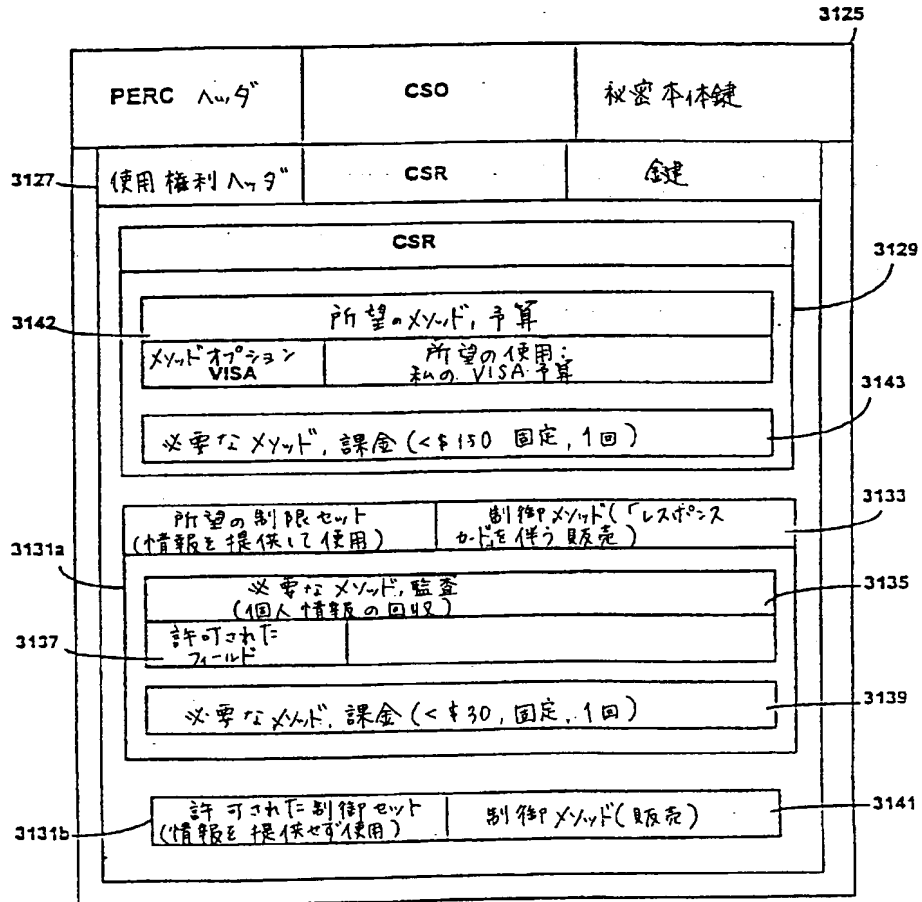 3125
PERC ヘッダ
CSO
秘密本体鍵
3127
使用権利ヘッダ
CSR
鍵
CSR
3129
3142
所望のメソッド, 予算
メソッドオプション
VISA
所望の使用:
私の VISA 予算
3143
必要なメソッド, 課金 (<$150 固定, 1回)
3133
所望の制限セット
(情報を提供して使用)
制御メソッド(「レスポンス
カード」を伴う販売)
3131a
必要なメソッド, 監査
(個人情報の回収)
3135
3137
許可された
フィールド
必要なメソッド, 課金 (<$30, 固定, 1回)
3139
3131b
許可された制御セット
(情報を提供せず使用)
制御メソッド(販売)
3141